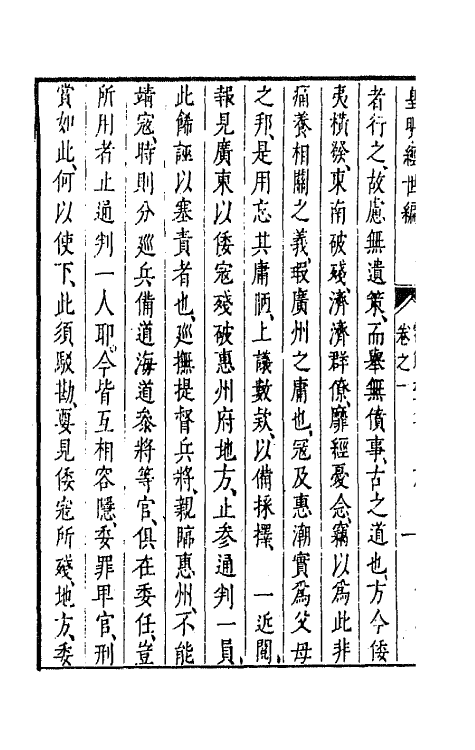 皇明經世編
卷之一
者行之、故慮無遺策、而舉無債事、古之道也、方今倭
夷橫發、東南破殘、濟濟群僚、靡經憂念、竊以爲此非
痛養相關之義、瑕廣州之庸也、冦及惠潮實爲父母
之邦、是用忘其庸陋、上議數欵、以備採擇、 一近閱、
報見廣東以倭冦殘破惠州府地方、止參通判一員、
此餙誣以塞責者也、巡撫提督兵將、親臨惠州、不能
靖冦、時則分巡兵備道海道叅將等官、俱在委任、豈
所用者止通判一人耶、今皆互相容隱、委罪卑官、刑
賞如此、何以使下、此須駁勘、要見倭冦所殘、地方、委